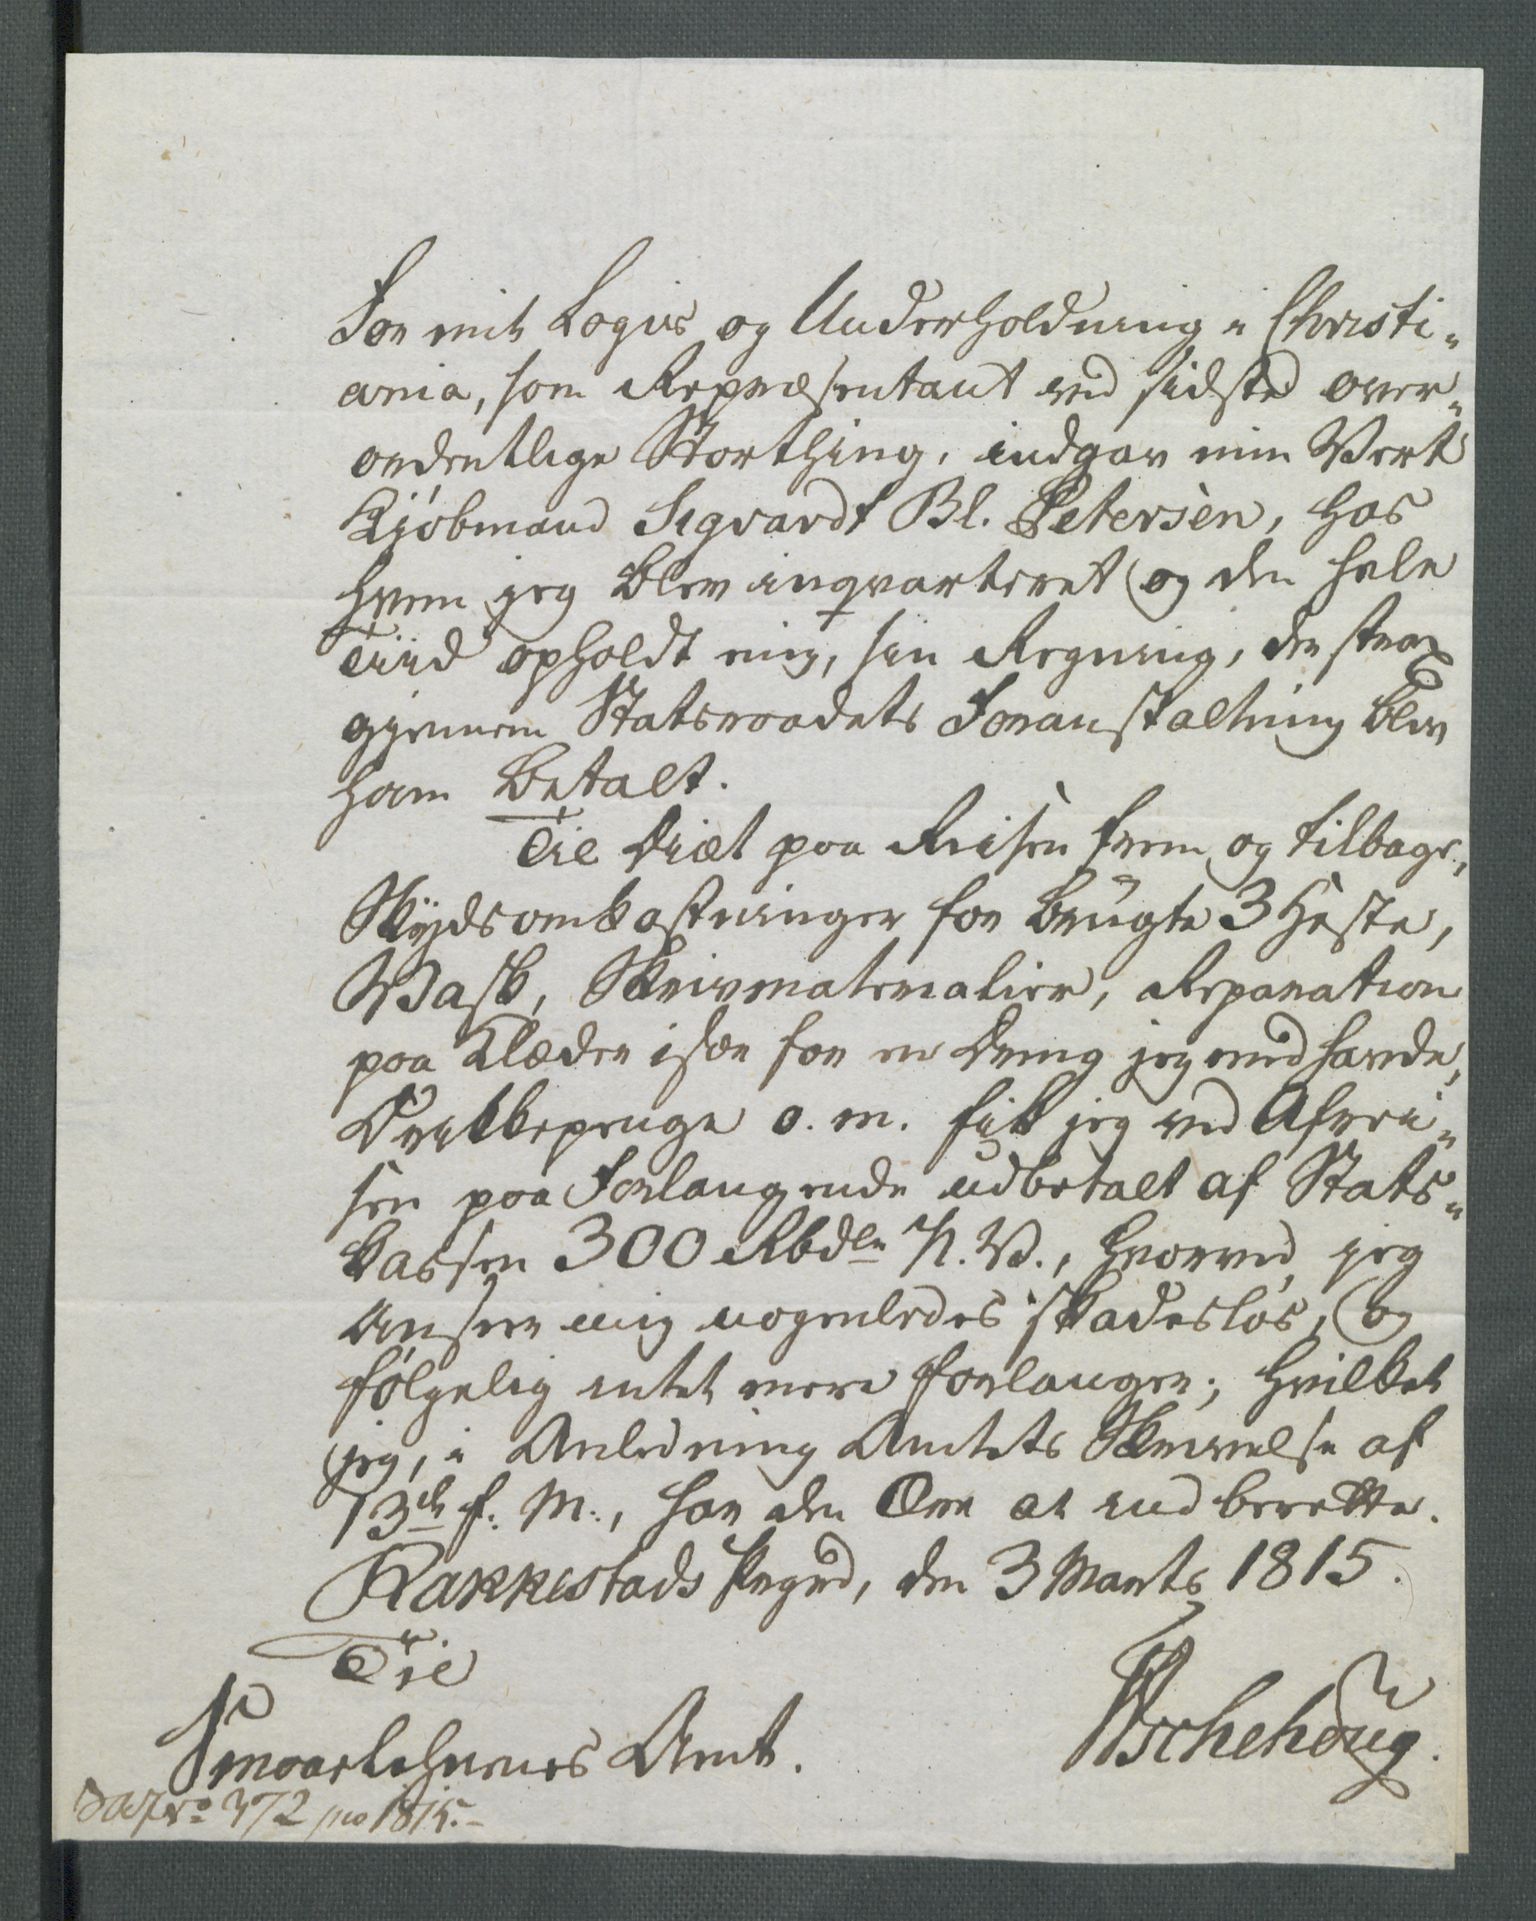 For mit Logis og Underholdning i Christi-
ania, som Repræsentant ved sidste over-
ordentlige Storthing, indgav min Vert
Kjøbmand Sigvardt Bl. Petersen, hos
hvem jeg blev inqvarteret og den hele
Tiid opholdt mig, sin Regning, der strax
gjennem Statsraadets Foranstaltning blev
ham betalt.
Til Diæt paa Reisen frem og tilbage,
Skydsomkostninger for brugte 3 Heste,
Vask, Skrivmaterialier, Reparation
paa Klæder især for en Dreng jeg medhavde,
Drikkepenge o. m. fik jeg ved Afrei-
sen paa Forlangende udbetalt af Stats-
kassen 300 Rbdlr N. V., hvorved jeg
anseer mig nogenledes skadesløs, og
følgelig intet mere forlanger; hvilket
jeg, i Anledning Amtets Skrivelse af
13de f. M., har den Ære at indberette.
Rakkestads Pregd, den 3 Marts 1815.
Til
Smaalehnenes Amt.
Aschehoug.
No 372 pro 1815.